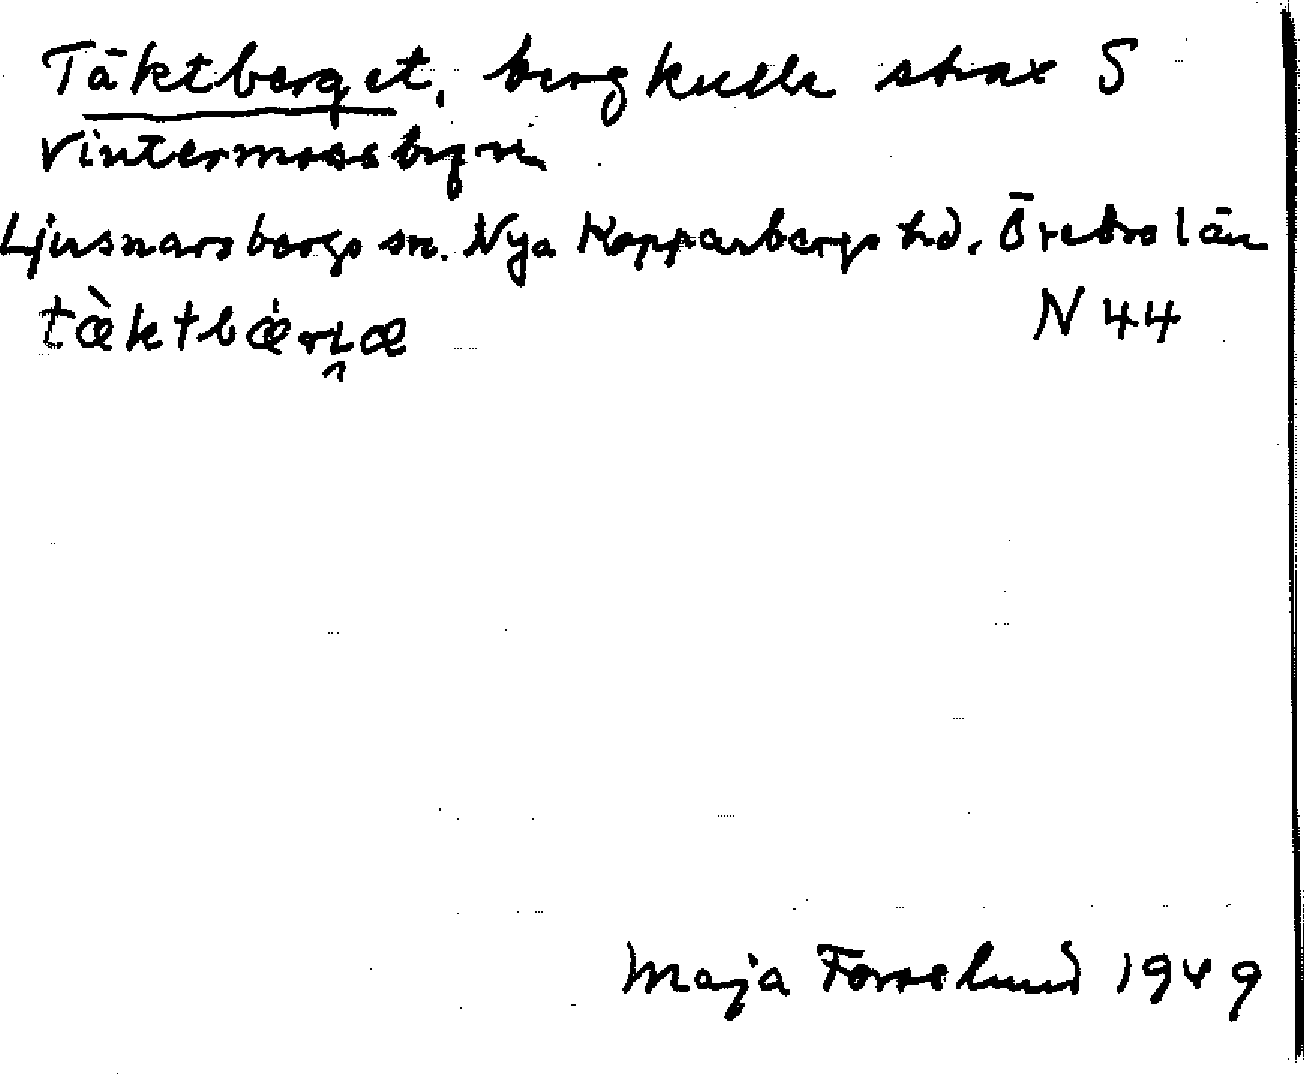 Täktberget, bergkulle strax S
Vintermossbyn
Ljusnarsbergs sn. Nya Kopparbergs hd. Örebro län
tæ̀ktbǽrı̯æ N 44
Maja Forslund 1949